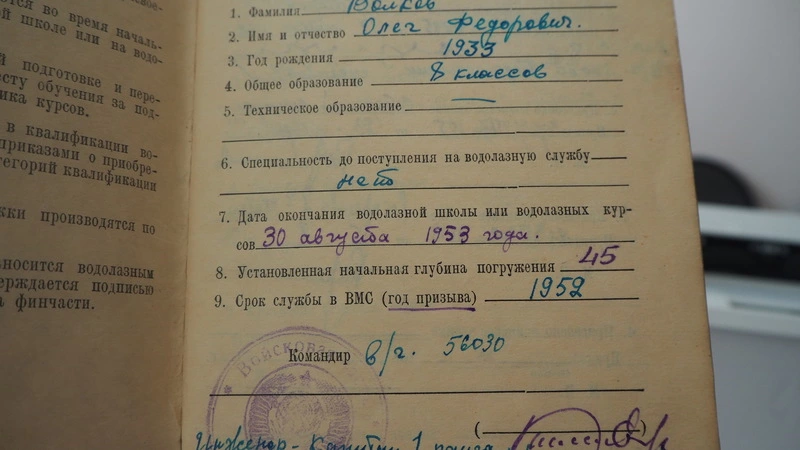 во время началь-
й школе или на водо-
й подготовке и пере-
есту обучения за под-
ика курсов.
в квалификации во-
приказами о приобре-
тегорий квалификации
жки производятся по
вносится водолазным
верждается подписью
а финчасти.
1. Фамилия Волков
2. Имя и отчество Олег Федорович.
3. Год рождения 1933
4. Общее образование 8 классов
5. Техническое образование —
6. Специальность до поступления на водолазную службу
нет
7. Дата окончания водолазной школы или водолазных кур-
сов 30 августа 1953 года.
8. Установленная начальная глубина погружения 45
9. Срок службы в ВМС (год призыва) 1952
Командир в/ч. 56030
Войсковая
Инженер-Капитан 1 ранга